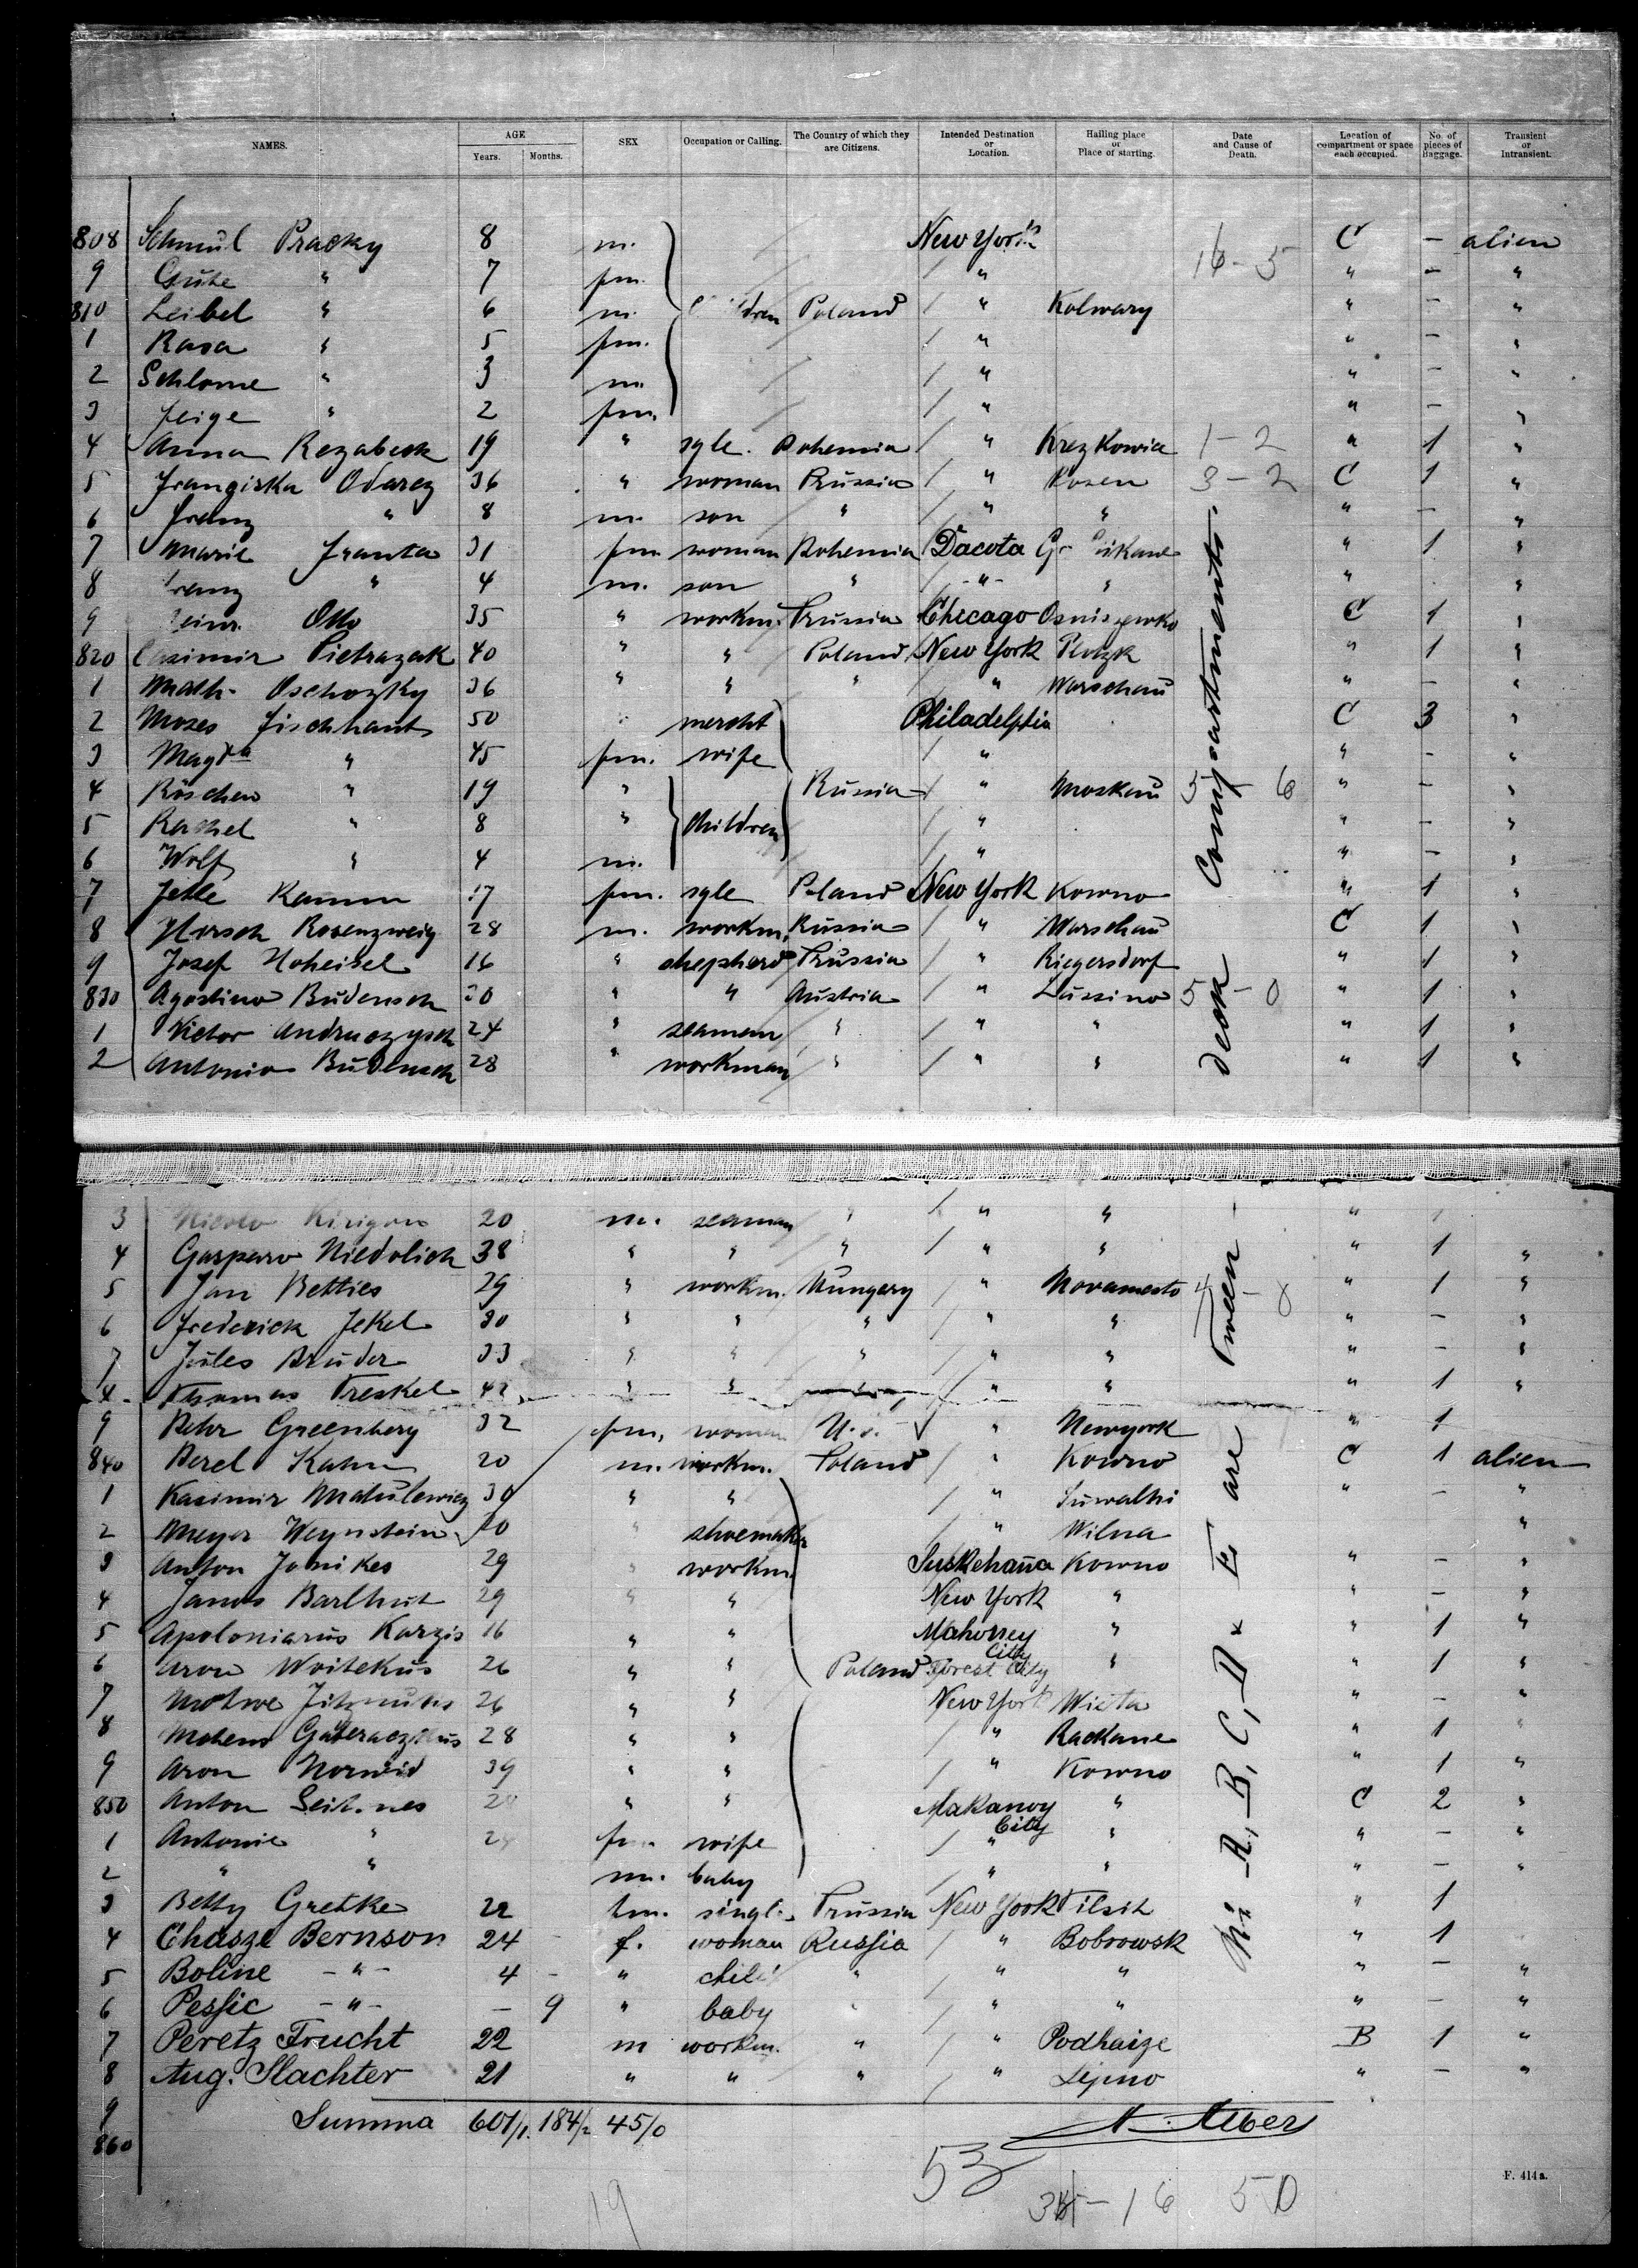 NAMES. AGE Years. Months. SEX Occupation or Calling. The Country of which they are Citizens. Intended Destination or Location. Hailing place or Place of starting. Date and Cause of Death. Location of compartment or space each occupied. No. of pieces of Baggage. Transient or Intransient.
808 Schmul Pracky 8 m. New York C - alien
9 " 7 fm. " 16-5 " - "
810 Leibel " 6 m. Poland " Kolwary " - "
1 Rasa " 5 fm. " " - "
2 Schlome " 3 m. " " - "
3 Feige " 2 fm. " " - "
4 Anna Rezabeck 19 " sgle. Bohemia " Krezkowice 1-2 " 1 "
5 Franziska Odarcz 36 " woman Prussia " Posen 3-2 C 1 "
6 Franz " 8 m. son " " " " - "
7 Marie Franta 31 fm. woman Bohemia Dacota " 1 "
8 " 4 m. son " " " " "
9 Otto 35 " workm. Prussia Chicago C 1 "
820 Casimir Pietrazak 40 " " Poland New York Plotzk " 1 "
1 Math. Oschozky 36 " " " " Warschau " - "
2 Moses Fischhaut 50 " mercht Philadelphia C 3 "
3 Magda " 45 fm. wife " " - "
4 Röschen " 19 " Russia " Moskau 5 6 " - "
5 Rachel " 8 " children " " - "
6 Wolf " 4 m. " " - "
7 Jette Kamm 17 fm. sgle Poland New York Kowno " 1 "
8 Hersch Rosenzweig 28 m. workm. Russia " Warschau C 1 "
9 Josef Hoheisel 16 " shepherd Prussia " Riegersdorf " 1 "
830 Agostino Budensch 20 " " Austria " Lussino 5-0 " 1 "
1 Victor Andruczysch 24 " seaman " " " " 1 "
2 Antonio Budensch 28 " workman " " " " 1 "
3 20 m. seaman " " " "
4 Gasparo Niedolich 38 " " " " " " 1 "
5 Jan Betties 29 " workm. Hungary " Novamesto " 1 "
6 Frederick Jekel 30 " " " " " " - "
7 Jules Bruder 33 " " " " " " - "
Thomas Treskel 42 " " " " " 1 "
9 Greenberg 32 fm. woman U.S. " Newyork " 1
840 Berel Kahn 20 m. workm. Poland " Kowno C 1 alien
1 Kasimir Matulewicz 30 " " " Suwalki " - "
2 Meyer Weynstein 20 " shoemaker " Wilna "
3 Anton Janikes 29 " workm. Suskehana Kowno " - "
4 Janos Barlhut 29 " " New York " " - "
5 Apoloniarus Karzis 16 " " Mahoney City " " 1 "
6 Aron Woitekus 26 " " Poland Forest City " " 1 "
7 26 " " New York " - "
8 28 " " " Rackane " 1 "
9 Aron Norwid 39 " " " Kowno " 1 "
850 Anton " " Makanoy City " C 2 "
1 Antonie " wife " " " - "
2 " " m. baby " " " - "
3 Betty Gretke 22 single. Prussia New York Tilsit " 1
4 Chasze Bernson 24 f. woman Russia " Bobrowsk " 1
5 Boline -"- 4 - " child " " " " - "
6 Pessie -"- - 9 " baby " " " - "
7 Peretz Frucht 22 m workm. " " Podhaize B 1 "
8 Aug. Slachter 21 " " " " Lipno " - "
9 Summa 601/1. 184/2 45/0
860
Nr. A, B, C, D & E are Tween deck Compartments.
53
19 16 50
F. 414a.